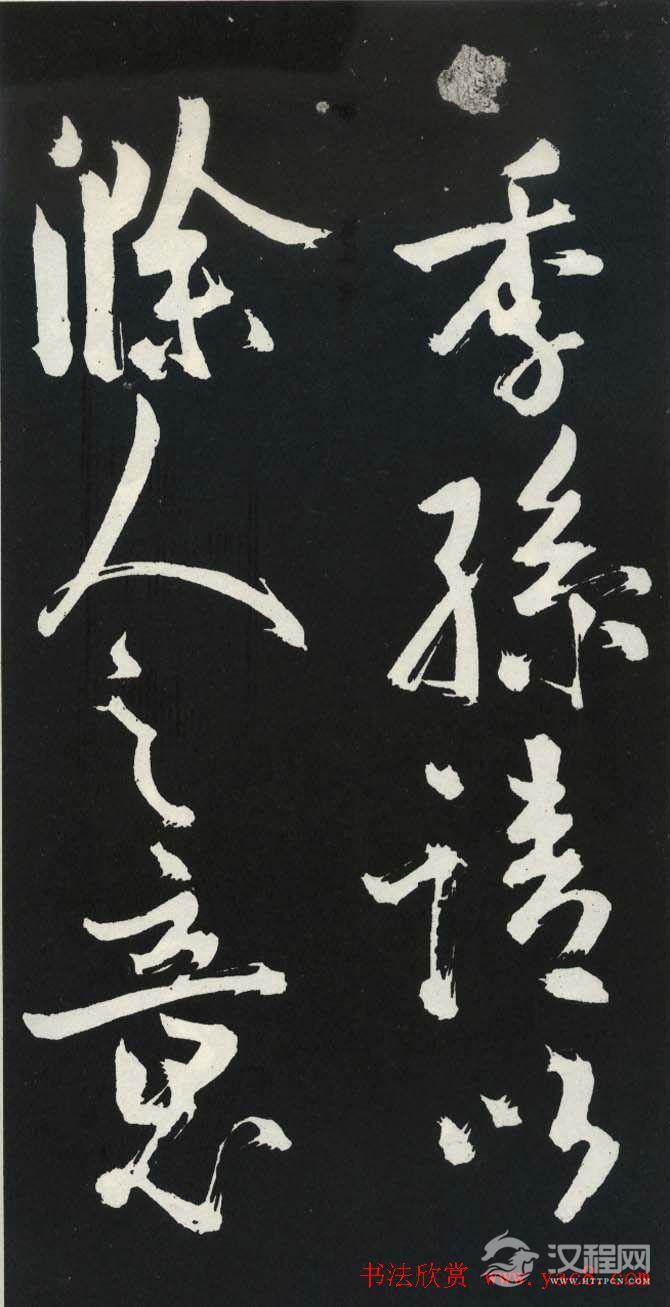 季孫請以
滁人之意
汉程网
WWW.HTTPCN.COM
书法欣赏